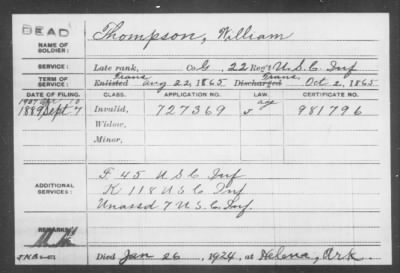 DEAD
NAME OF SOLDIER: Thompson, William
SERVICE: Late rank, Co. G, 22 Reg't U.S.C. Inf
TERM OF SERVICE: Trans Enlisted Aug 22, 1865 Trans Discharged Oct 2, 1865
DATE OF FILING. CLASS. APPLICATION NO. LAW. CERTIFICATE NO.
1907 Apr 10 age
1889 Sept 7 Invalid, 727369 981796
Widow,
Minor,
ADDITIONAL SERVICES:
F 45 U S C Inf
K 118 U S C Inf
Unassd 7 U.S.C. Inf.
REMARKS:
Died Jan 26, 1924, at Helena, Ark.